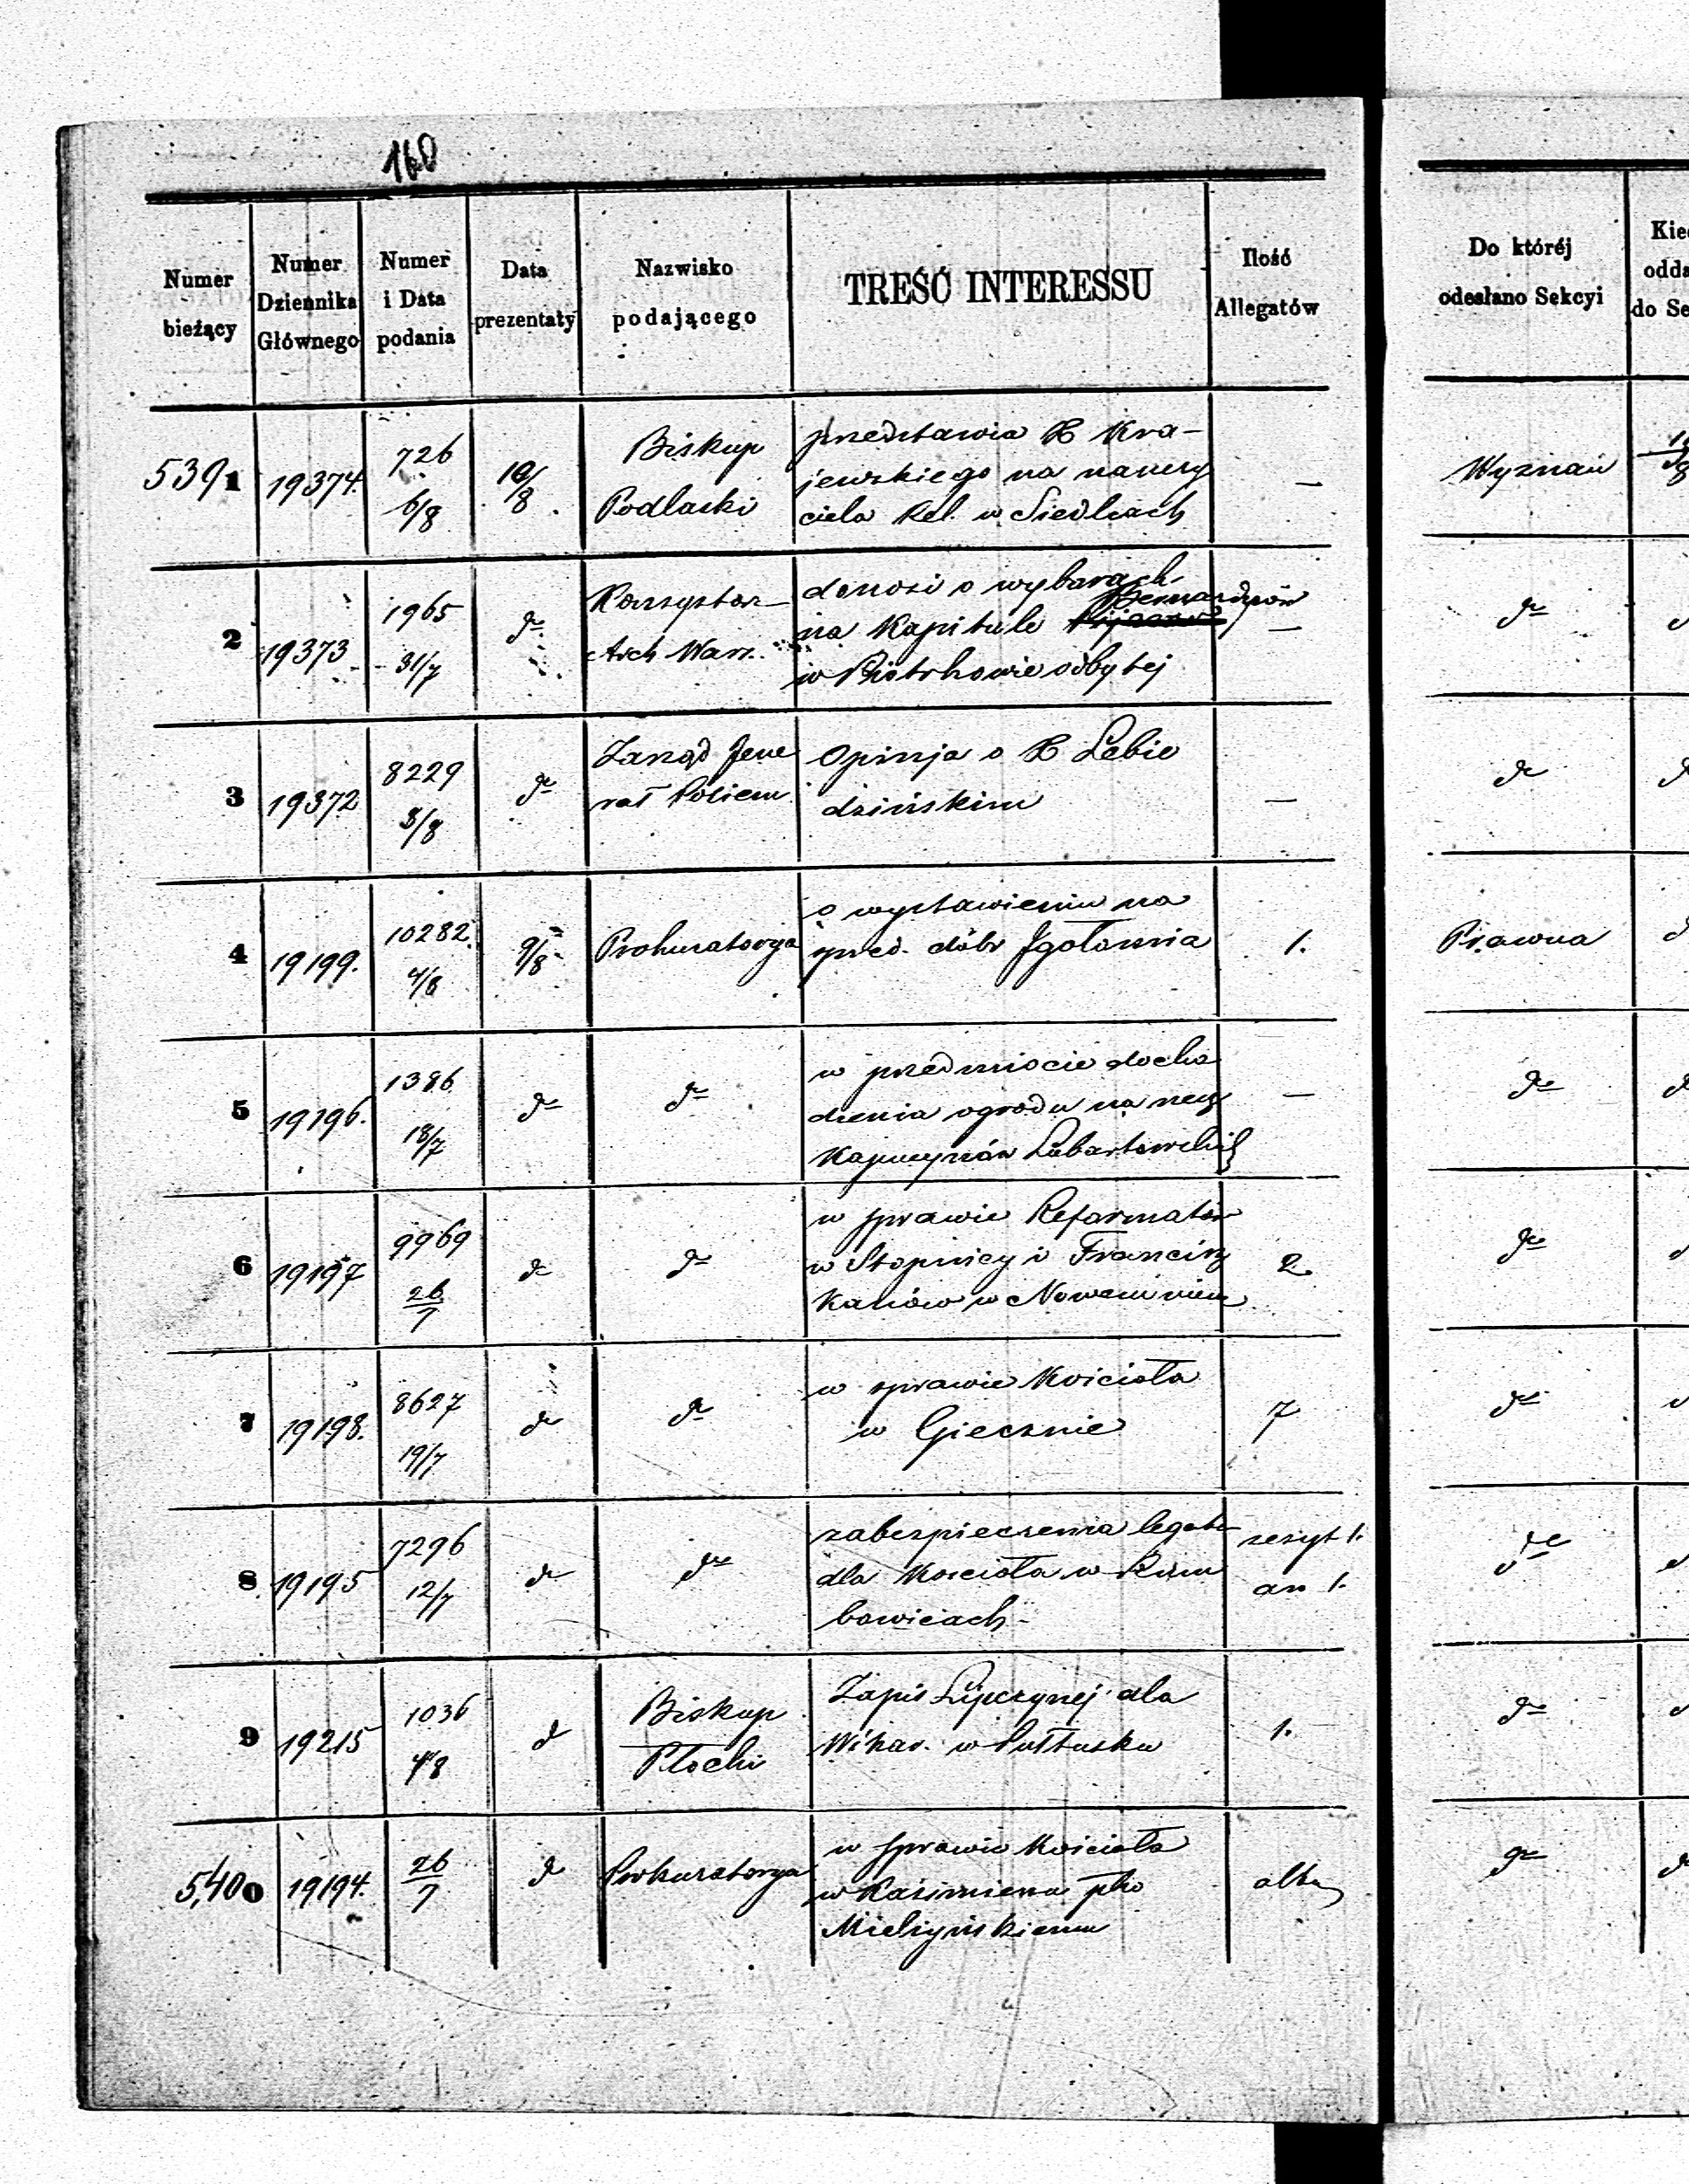 160
Numer bieżący
Numer Dziennika Głównego
Numer i Data podania
Data prezentaty
Nazwisko podającego
TREŚĆ INTERESSU
Ilość Allegatów
Do któréj odesłano Sekcyi
Kie
odda
do Se
5391 19374. 726 6/8 10/8 Biskup Podlaski
przedstawia X Kra-
jewskiego na nauczy
ciela Rel. w Siedlcach
— Wyznań
2 19373 1965 31/7 do Konsystor Arch Warz.
donosi o wyborach
na Kapitule Bernardynów
w Piotrkowie odbytej
— do
3 19372 8229 8/8 do Zarząd Jene
rał Policm
Opinja o X Lebie
dzińskim
— do
4 19199. 10282. 4/8 9/8 Prokuratorya
o wystawieniu na
sprzed. dóbr Igołomia
1. Prawna
5 19196. 1386 18/7 do do
w przedmiocie docho
dzenia ogrodu na rzecz
Kapucynów Lubartowskich
— do
6 19197 9969 26/7 do do
w sprawie Reformatów
w Stopnicy i Francisz
kanów w Nowem mieście
2 do
7 19198. 8627 19/7 do do
w sprawie Kościoła
w Giecznie
7 do
8 19195 7296 12/7 do do
zabezpieczenia legatu
dla Kościoła w
bowicach-
zeszyt 1.
an 1.
do
9 19215 1036 4/8 d Biskup Płocki
Zapis Lipczynej dla
Wikar. w Pułtusku
1. do
5,400 19194. 26/7 do Prokuratorya
w sprawie Kościoła
w Kazimierzu pko
Mielżyńskiemu
akta do